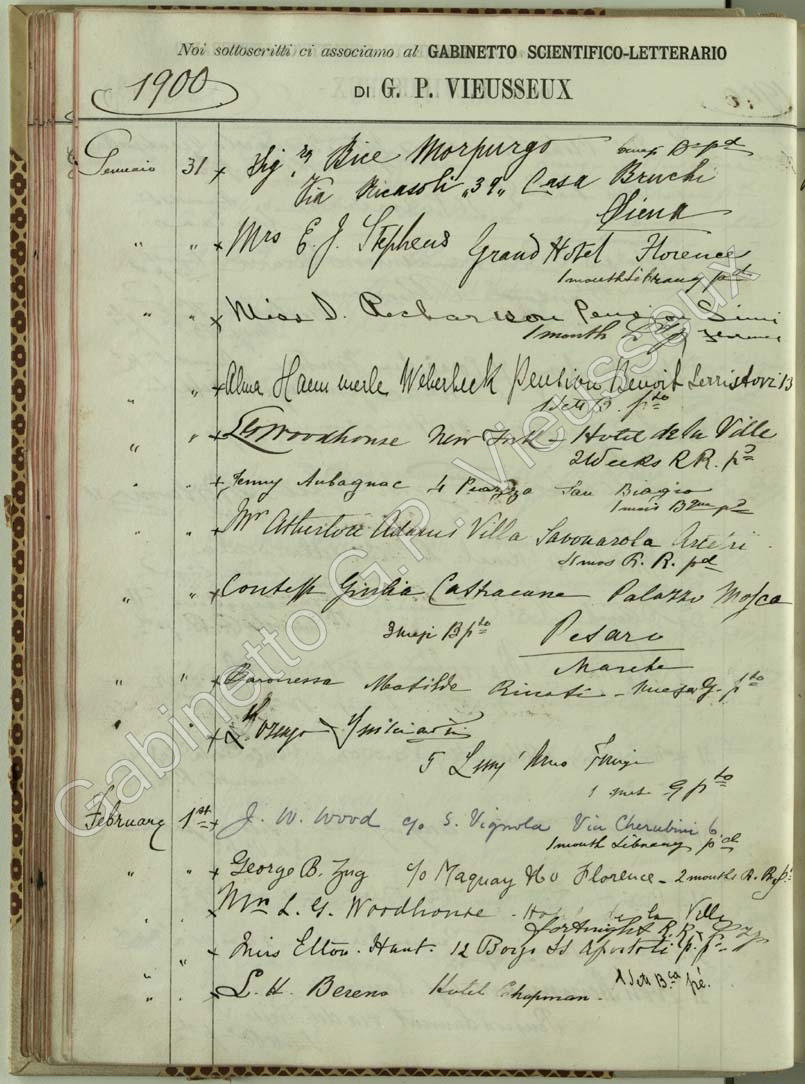 Noi sottoscritti ci associamo al GABINETTO SCIENTIFICO-LETTERARIO
1900
DI G. P. VIEUSSEUX
Gennaio 31 x Sig.ra Bice Morpurgo
Via Ricasoli "39" Casa Bruchi
Siena
" " x Mrs E. J. Stephens Grand Hotel Florence
1 month Library pd
" " x Miss D. Richardson Pension Simi
1 month
" " x Alma Haemmerle Weberbeck Pension Benoit Serristori 13
B. pto
" " x Woodhouse New York - Hotel de la Ville
2 Weeks R.R. pd
" " x Jenny Aubagnac 4 Piazza San Biagio
1 mois
" " x Mr Atherton Adams Villa Savonarola
mos R. R. pd
" " x Contess Giulia Castracane Palazzo Mosca
3 mesi B pto Pesaro
Marche
" " x Baronessa Matilde - G. pto
" " x
5 Lung' Arno
1 G pto
February 1st x J. W. Wood c/o S. Vignola Via Cherubini 6
1 month Library pd
" " x George B. Zug c/o Maquay Florence - 2 months R. R.
" " x L. G. Woodhouse - Hotel de la Ville
fortnight R.R.
" " x Miss Elton. Hunt. 12 Borgo SS Apostoli
" " x L. H. Berens Hotel Chapman.
Gabinetto G.P. Vieusseux